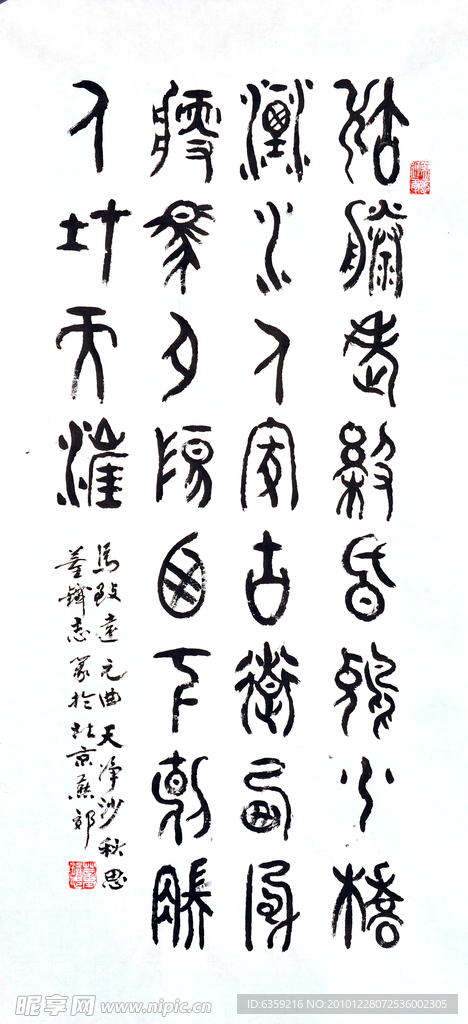 枯藤老樹昏鴉小橋
流水人家古道西風
瘦馬夕陽西下斷腸
人在天涯
馬致遠元曲天淨沙秋思
董鐵志篆於北京燕郊
昵享网 www.nipic.cn
ID:6359216 NO:20101228072536002305